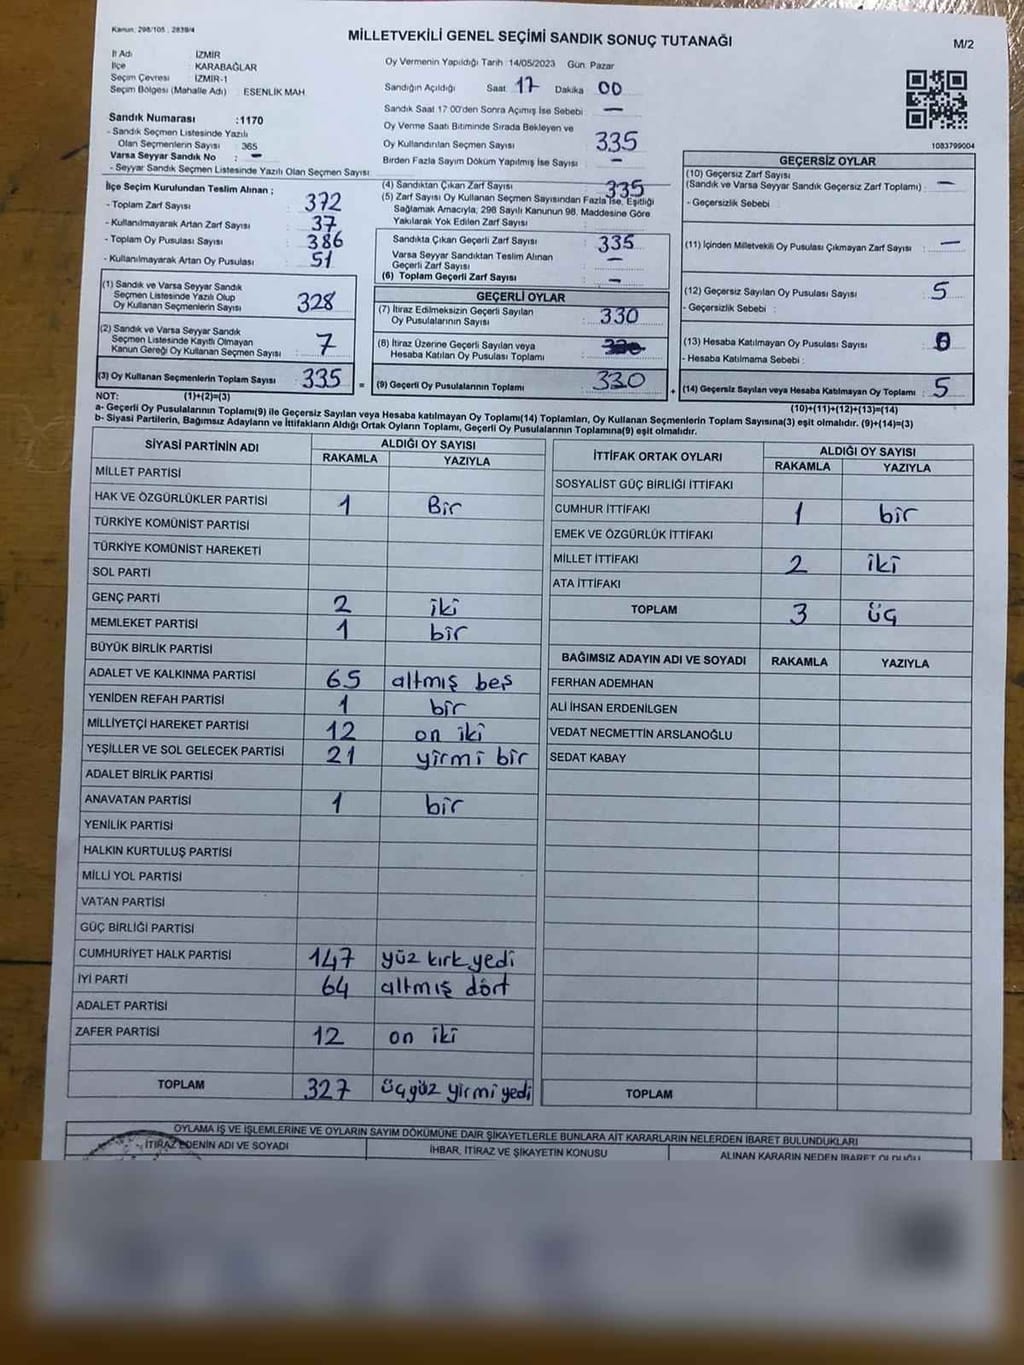 Kanun: 298/105 , 2839/4
MİLLETVEKİLİ GENEL SEÇİMİ SANDIK SONUÇ TUTANAĞI
M/2
İl Adı : İZMİR
İlçe : KARABAĞLAR
Seçim Çevresi : İZMİR-1
Seçim Bölgesi (Mahalle Adı) : ESENLİK MAH
Sandık Numarası :1170
- Sandık Seçmen Listesinde Yazılı
Olan Seçmenlerin Sayısı : 365
Varsa Seyyar Sandık No : -
- Seyyar Sandık Seçmen Listesinde Yazılı Olan Seçmen Sayısı :
Oy Vermenin Yapıldığı Tarih :14/05/2023 Gün: Pazar
Sandığın Açıldığı : Saat 17 Dakika 00
Sandık Saat 17:00'den Sonra Açımış İse Sebebi : -
Oy Verme Saati Bitiminde Sırada Bekleyen ve
Oy Kullandırılan Seçmen Sayısı : 335
Birden Fazla Sayım Döküm Yapılmış İse Sayısı : -
1083799004
İlçe Seçim Kurulundan Teslim Alınan ;
- Toplam Zarf Sayısı : 372
- Kullanılmayarak Artan Zarf Sayısı : 37
- Toplam Oy Pusulası Sayısı : 386
- Kullanılmayarak Artan Oy Pusulası : 51
(1) Sandık ve Varsa Seyyar Sandık
Seçmen Listesinde Yazılı Olup
Oy Kullanan Seçmenlerin Sayısı : 328
(2) Sandık ve Varsa Seyyar Sandık
Seçmen Listesinde Kayıtlı Olmayan
Kanun Gereği Oy Kullanan Seçmen Sayısı : 7
(3) Oy Kullanan Seçmenlerin Toplam Sayısı : 335 =
(4) Sandıktan Çıkan Zarf Sayısı : 335
(5) Zarf Sayısı Oy Kullanan Seçmen Sayısından Fazla İse, Eşitliği
Sağlamak Amacıyla, 298 Sayılı Kanunun 98. Maddesine Göre
Yakılarak Yok Edilen Zarf Sayısı :
Sandıkta Çıkan Geçerli Zarf Sayısı : 335
Varsa Seyyar Sandıktan Teslim Alınan
Geçerli Zarf Sayısı : -
(6) Toplam Geçerli Zarf Sayısı : -
GEÇERLİ OYLAR
(7) İtiraz Edilmeksizin Geçerli Sayılan
Oy Pusulalarının Sayısı : 330
(8) İtiraz Üzerine Geçerli Sayılan veya
Hesaba Katılan Oy Pusulası Toplamı :
(9) Geçerli Oy Pusulalarının Toplamı : 330 +
GEÇERSİZ OYLAR
(10) Geçersiz Zarf Sayısı
(Sandık ve Varsa Seyyar Sandık Geçersiz Zarf Toplamı) : -
- Geçersizlik Sebebi :
(11) İçinden Milletvekili Oy Pusulası Çıkmayan Zarf Sayısı : -
(12) Geçersiz Sayılan Oy Pusulası Sayısı : 5
- Geçersizlik Sebebi :
(13) Hesaba Katılmayan Oy Pusulası Sayısı : 0
- Hesaba Katılmama Sebebi :
(14) Geçersiz Sayılan veya Hesaba Katılmayan Oy Toplamı : 5
NOT: (1)+(2)=(3)
(10)+(11)+(12)+(13)=(14)
a- Geçerli Oy Pusulalarının Toplamı(9) ile Geçersiz Sayılan veya Hesaba katılmayan Oy Toplamı(14) Toplamları, Oy Kullanan Seçmenlerin Toplam Sayısına(3) eşit olmalıdır. (9)+(14)=(3)
b- Siyasi Partilerin, Bağımsız Adayların ve İttifakların Aldığı Ortak Oyların Toplamı, Geçerli Oy Pusulalarının Toplamına(9) eşit olmalıdır.
SİYASİ PARTİNİN ADI ALDIĞI OY SAYISI
RAKAMLA YAZIYLA
MİLLET PARTİSİ
HAK VE ÖZGÜRLÜKLER PARTİSİ 1 Bir
TÜRKİYE KOMÜNİST PARTİSİ
TÜRKİYE KOMÜNİST HAREKETİ
SOL PARTİ
GENÇ PARTİ 2 iki
MEMLEKET PARTİSİ 1 bir
BÜYÜK BİRLİK PARTİSİ
ADALET VE KALKINMA PARTİSİ 65 altmış beş
YENİDEN REFAH PARTİSİ 1 bir
MİLLİYETÇİ HAREKET PARTİSİ 12 on iki
YEŞİLLER VE SOL GELECEK PARTİSİ 21 yirmi bir
ADALET BİRLİK PARTİSİ
ANAVATAN PARTİSİ 1 bir
YENİLİK PARTİSİ
HALKIN KURTULUŞ PARTİSİ
MİLLİ YOL PARTİSİ
VATAN PARTİSİ
GÜÇ BİRLİĞİ PARTİSİ
CUMHURİYET HALK PARTİSİ 147 yüz kırk yedi
İYİ PARTİ 64 altmış dört
ADALET PARTİSİ
ZAFER PARTİSİ 12 on iki
TOPLAM 327 üçyüz yirmi yedi
İTTİFAK ORTAK OYLARI ALDIĞI OY SAYISI
RAKAMLA YAZIYLA
SOSYALİST GÜÇ BİRLİĞİ İTTİFAKI
CUMHUR İTTİFAKI 1 bir
EMEK VE ÖZGÜRLÜK İTTİFAKI
MİLLET İTTİFAKI 2 iki
ATA İTTİFAKI
TOPLAM 3 üç
BAĞIMSIZ ADAYIN ADI VE SOYADI RAKAMLA YAZIYLA
FERHAN ADEMHAN
ALİ İHSAN ERDENİLGEN
VEDAT NECMETTİN ARSLANOĞLU
SEDAT KABAY
TOPLAM
OYLAMA İŞ VE İŞLEMLERİNE VE OYLARIN SAYIM DÖKÜMÜNE DAİR ŞİKAYETLERLE BUNLARA AİT KARARLARIN NELERDEN İBARET BULUNDUKLARI
İTİRAZ EDENİN ADI VE SOYADI İHBAR, İTİRAZ VE ŞİKAYETİN KONUSU ALINAN KARARIN NEDEN İBARET OLDUĞU